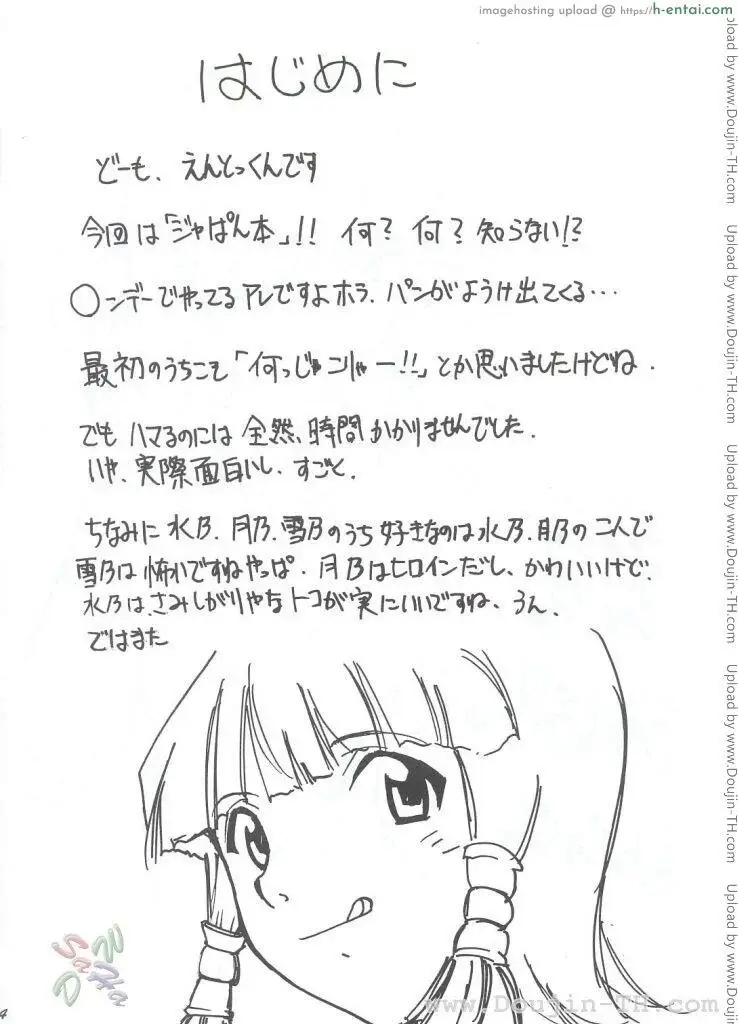 imagehosting upload @ https://h-entai.com
はじめに
どーも、えんとっくんです
今回は「ジャぱん本」!! 何? 何? 知らない!?
○ンデーでやってるアレですよホラ、パンがようけ出てくる…
最初のうちこそ「何っじゃこりゃー!!」とか思いましたけどね.
でもハマるのには全然、時間かかりませんでした.
いや、実際面白いし、すごと.
ちなみに水乃、月乃、雪乃のうち好きなのは水乃、月乃のこんで
雪乃は怖いですねやっぱ. 月乃はヒロインだし、かわいいけど、
水乃は、さみしがりやなトコが実にいいですね、うん.
ではまた
4
SaWa
DHa
www.Doujin-TH.com
Upload by www.Doujin-TH.com
Upload by www.Doujin-TH.com
Upload by www.Doujin-TH.com
Upload by www.Doujin-TH.com
Upload by www.Doujin-TH.com